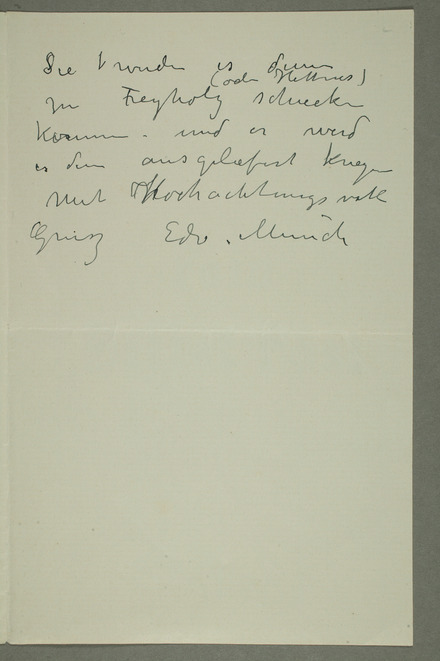 Sie werden es dann
(oder Hettners)
zu Freyhold schicken
können – und er werd
es dem ausgeliefert kriegen
Mit Hochachtungsvoll
Grusz Edv. Munch